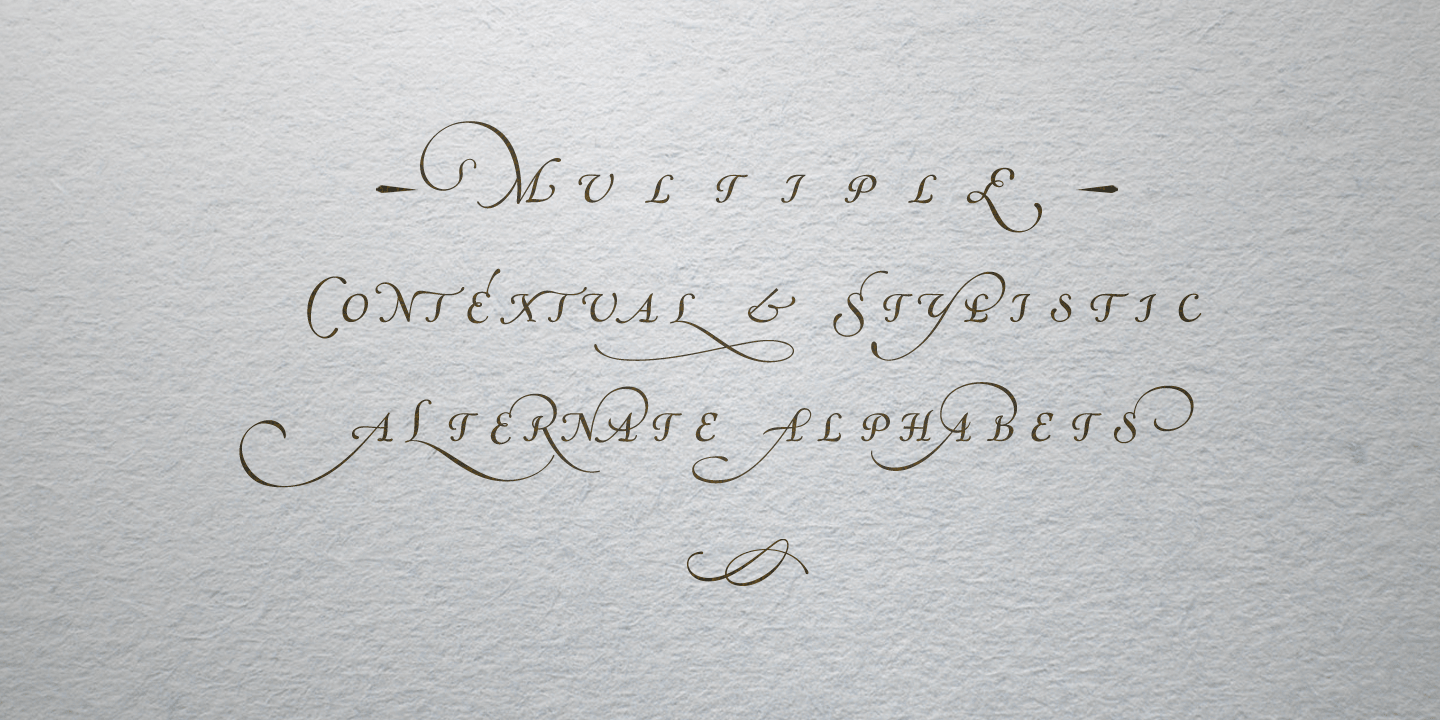 Multiple
Contextual & Stylistic
Alternate Alphabets